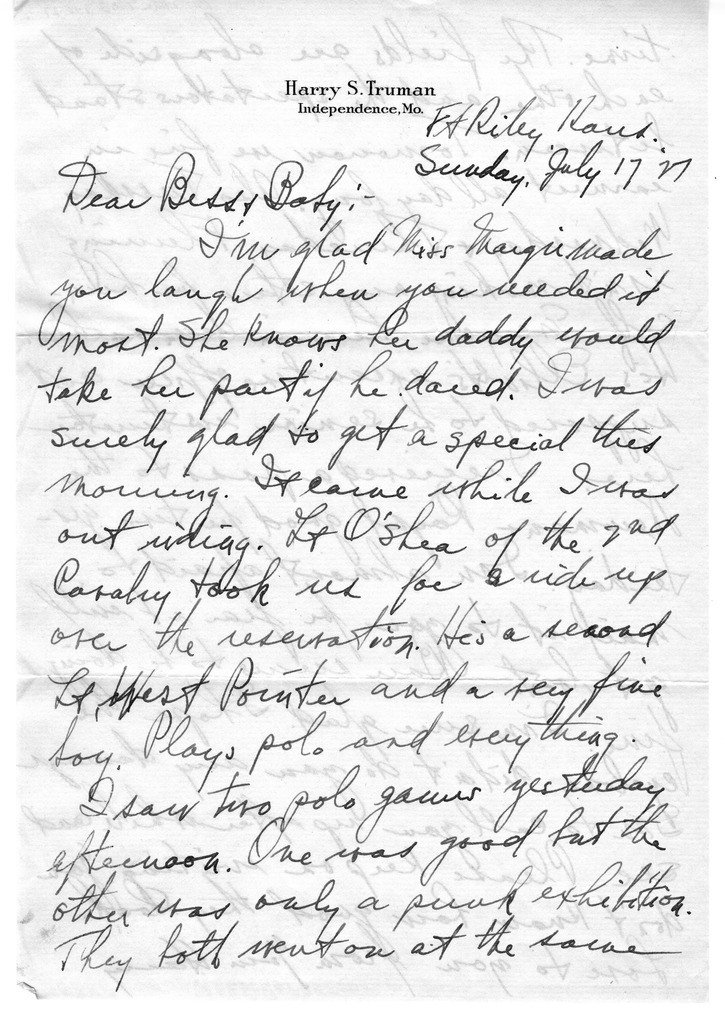 Harry S. Truman
Independence, Mo.
Ft Riley, Kans.
Sunday, July 17 '27
Dear Bess & Baby:-
I'm glad Miss Margie made
you laugh when you needed it
most. She knows her daddy would
take her part if he dared. I was
surely glad to get a special this
morning. It came while I was
out riding. Lt O'Shea of the 2nd
Cavalry took us for a ride up
over the reservation. He's a second
Lt, West Pointer and a very fine
boy. Plays polo and everything.
I saw two polo games yesterday
afternoon. One was good but the
other was only a punk exhibition.
They both went on at the same